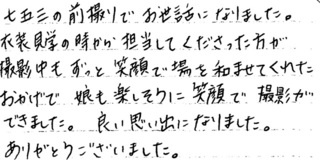 七五三の前撮りでお世話になりました。
衣装見学の時から担当してくださった方が
撮影中もずっと笑顔で場を和ませてくれた
おかげで娘も楽しそうに笑顔で撮影が
できました。良い思い出になりました。
ありがとうございました。